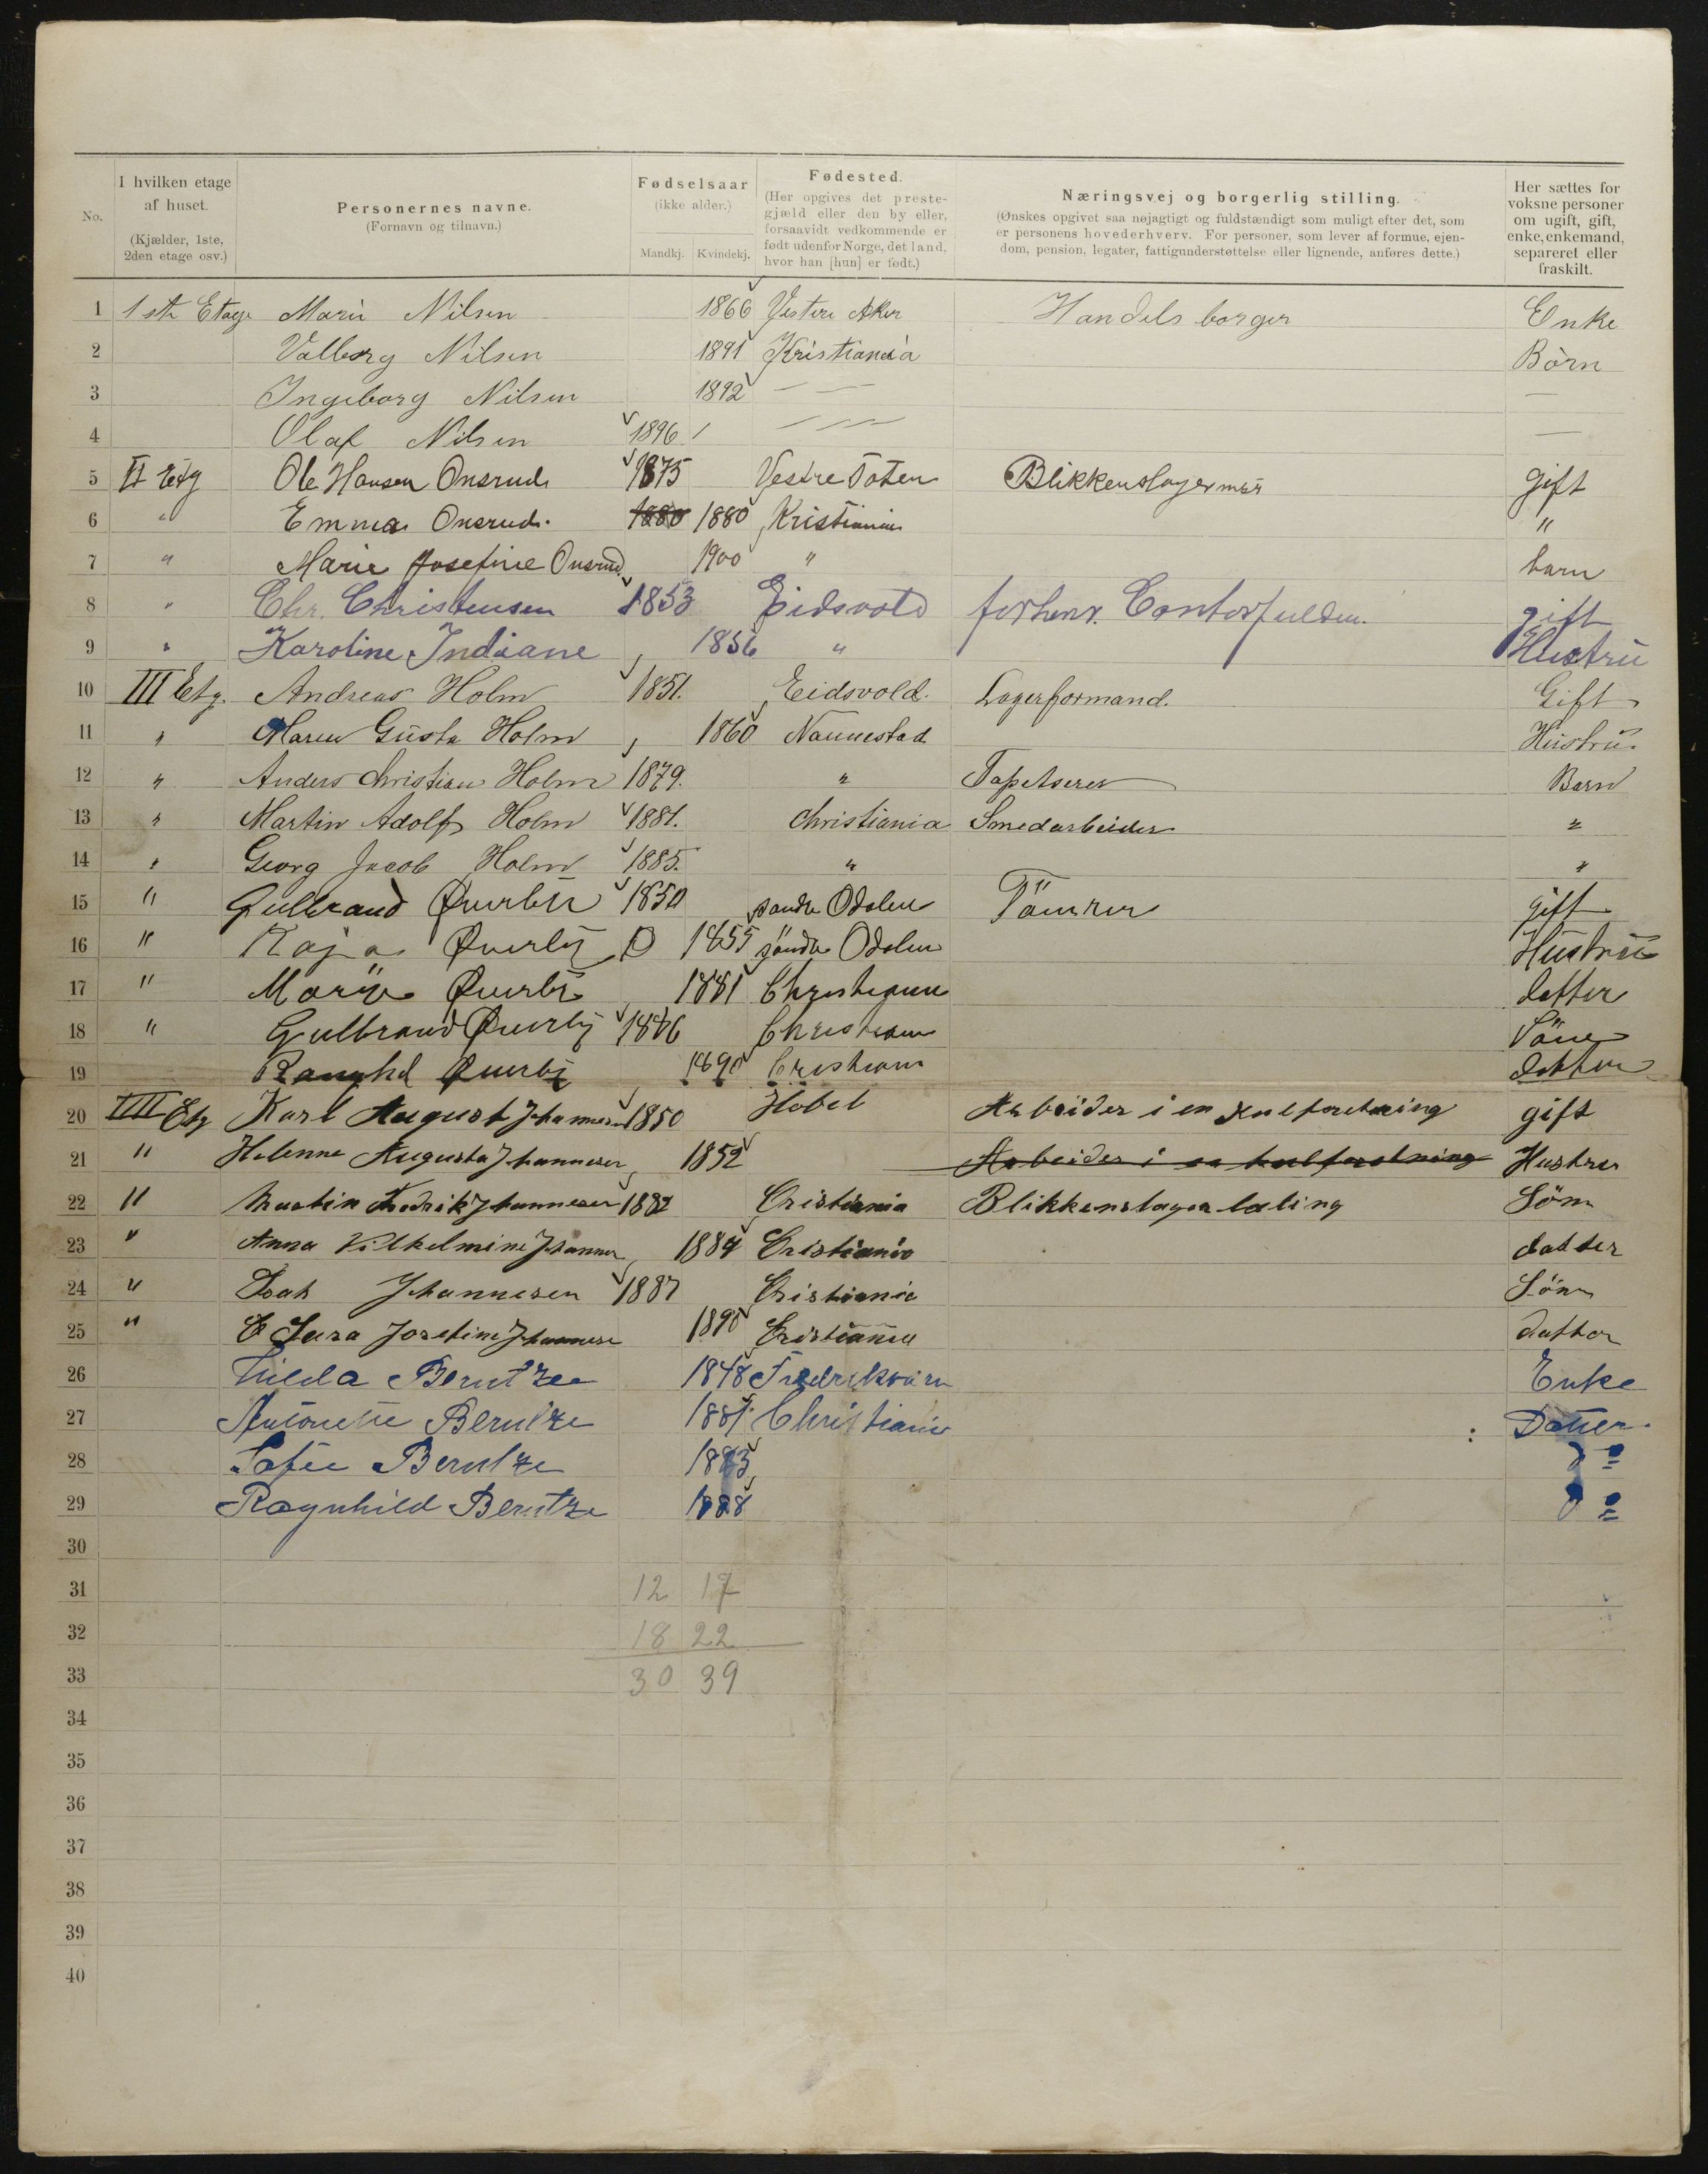 No.
I hvilken etage af huset.
(Kjælder, 1ste, 2den etage osv.)
Personernes navne.
(Fornavn og tilnavn.)
Fødselsaar
(ikke alder.)
Mandkj. Kvindekj.
Fødested.
(Her opgives det preste-
gjæld eller den by eller,
forsaavidt vedkommende er
født udenfor Norge, det land,
hvor han [hun] er født.)
Næringsvej og borgerlig stilling.
(Ønskes opgivet saa nøjagtigt og fuldstændigt som muligt efter det, som
er personens hovederhverv. For personer, som lever af formue, ejen-
dom, pension, legater, fattigunderstøttelse eller lignende, anføres dette.)
Her sættes for
voksne personer
om ugift, gift,
enke, enkemand,
separeret eller
fraskilt.
1 1ste Etage Marie Nilsen 1866 Vestre Aker Handels borger Enke
2 Valborg Nilsen 1891 Kristiania Børn
3 Ingeborg Nilsen 1892 — — —
4 Olaf Nilsen 1896 — — —
5 II Etg Ole Hansen Onsrud 1875 Vestre Toten Blikkenslagermes gift
6 " Emma Onsrud. 1880 1880 Kristiania "
7 " Marie Josefine Onsrud 1900 " barn
8 " Chr. Christensen 1853 Eidsvold forhenv. Contorfuldm. gift
9 " Karoline Indiane 1856 " Hustru
10 III Etg. Andreas Holm 1851. Eidsvold. Lagerformand. Gift
11 " Maren Gusta Holm 1860 Nannestad Hustru
12 " Anders Christian Holm 1879. " Tapetserer Barn
13 " Martin Adolf Holm 1881. Christiania Smedarbeider "
14 " Georg Jacob Holm 1885. " "
15 " Gulbrand Øverby 1850 søndre Odalen Tömrer gift
16 " Kaja Øverby 1855 søndre Odalen Hustru
17 " Marie Øverby 1881 Christiania datter
18 " Gulbrand Øverby 1886 Christiania Sön
19 Øverby 1890 Cristiania datter
20 IIII Etg Karl August Johannesen 1850 Hobel Arbeider i en kulforretning gift
21 " Helenne Augusta Johannesen 1852 Arbeider i en kulforretning Hustru
22 " Martin Fredrik Johannesen 1882 Cristiania Blikkenslager læling Sön
23 " Anna Vilhelmine Johannes 1884 Cristiania datter
24 " Isak Johannesen 1887 Cristiania Sön
25 " Clara Josefine Johannese 1890 Cristiania datter
26 Hilda Berntzen 1848 Fredriksværn Enke
27 Antonette Berntzen 1881. Christiania : Datter.
28 Sofie Berntzen 1883 do
29 Ragnhild Berntzen 1888 do
30
31 12 17
32 18 22
33 30 39
34
35
36
37
38
39
40